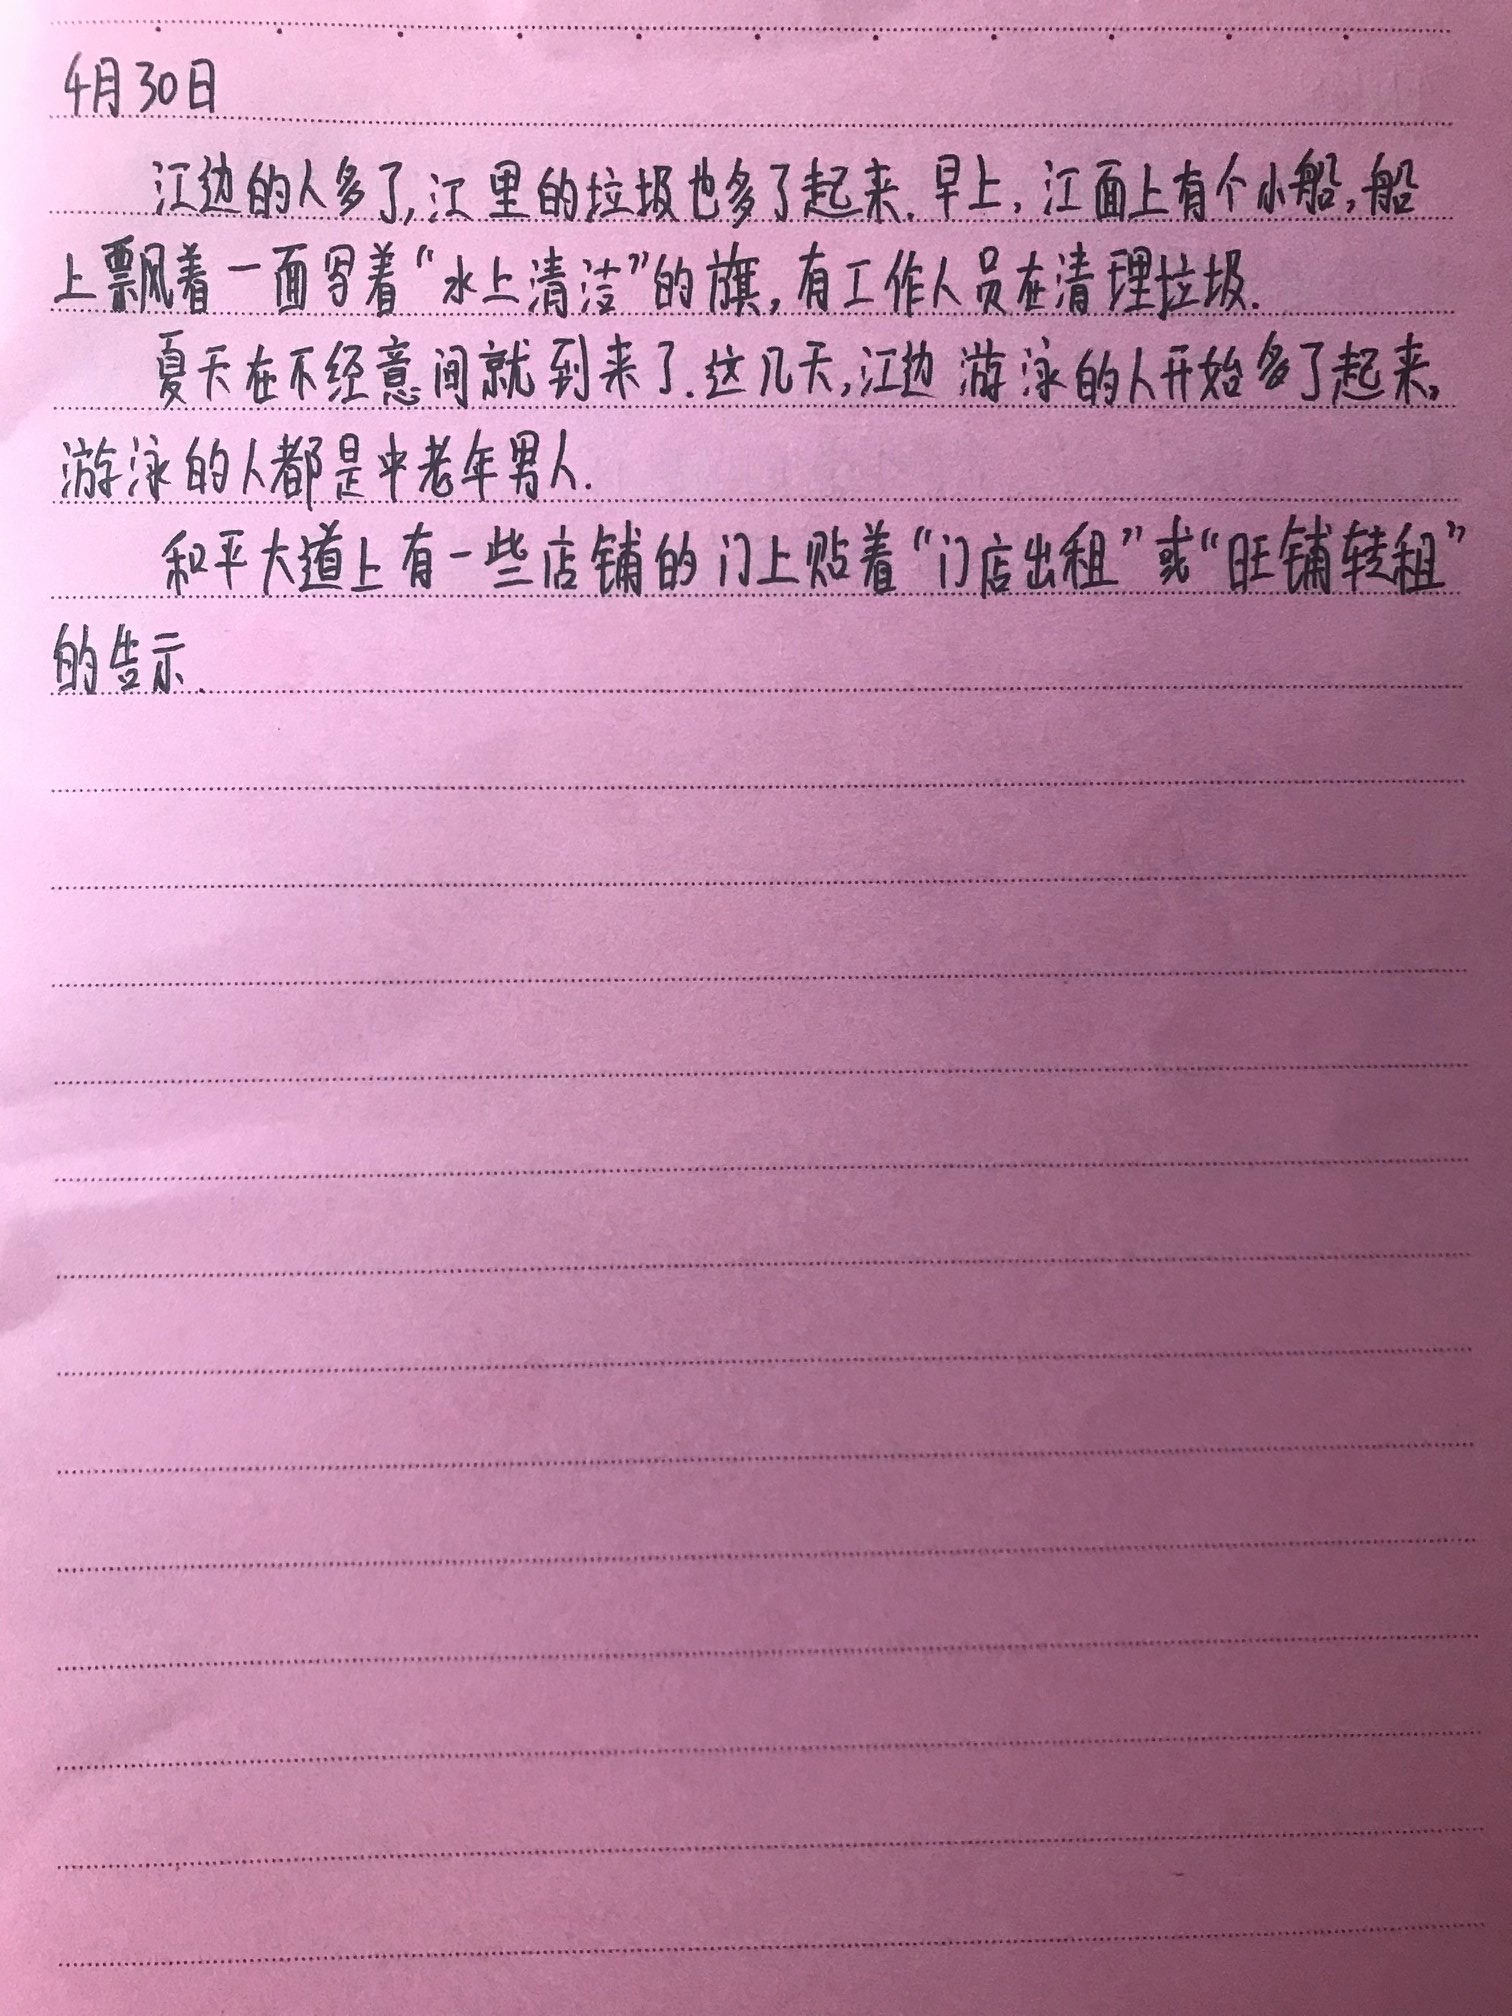 4月30日
江边的人多了,江里的垃圾也多了起来.早上,江面上有个小船,船
上飘着一面写着“水上清洁”的旗,有工作人员在清理垃圾.
夏天在不经意间就到来了.这几天,江边游泳的人开始多了起来,
游泳的人都是中老年男人.
和平大道上有一些店铺的门上贴着“门店出租”或“旺铺转租”
的告示.